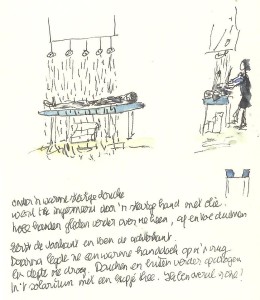 onder 'n warme stevige douche
word ik ingesmeerd door 'n stevige hand met olie.
twee handen gleden verder over me heen, af en toe duimen
eerst de voorkant en toen de achterkant.
Daarna legde ze een warme handdoek op m'n rug
en depte me droog. Douchen en buiten verder opdrogen
in 't solarium met een kopje thee.